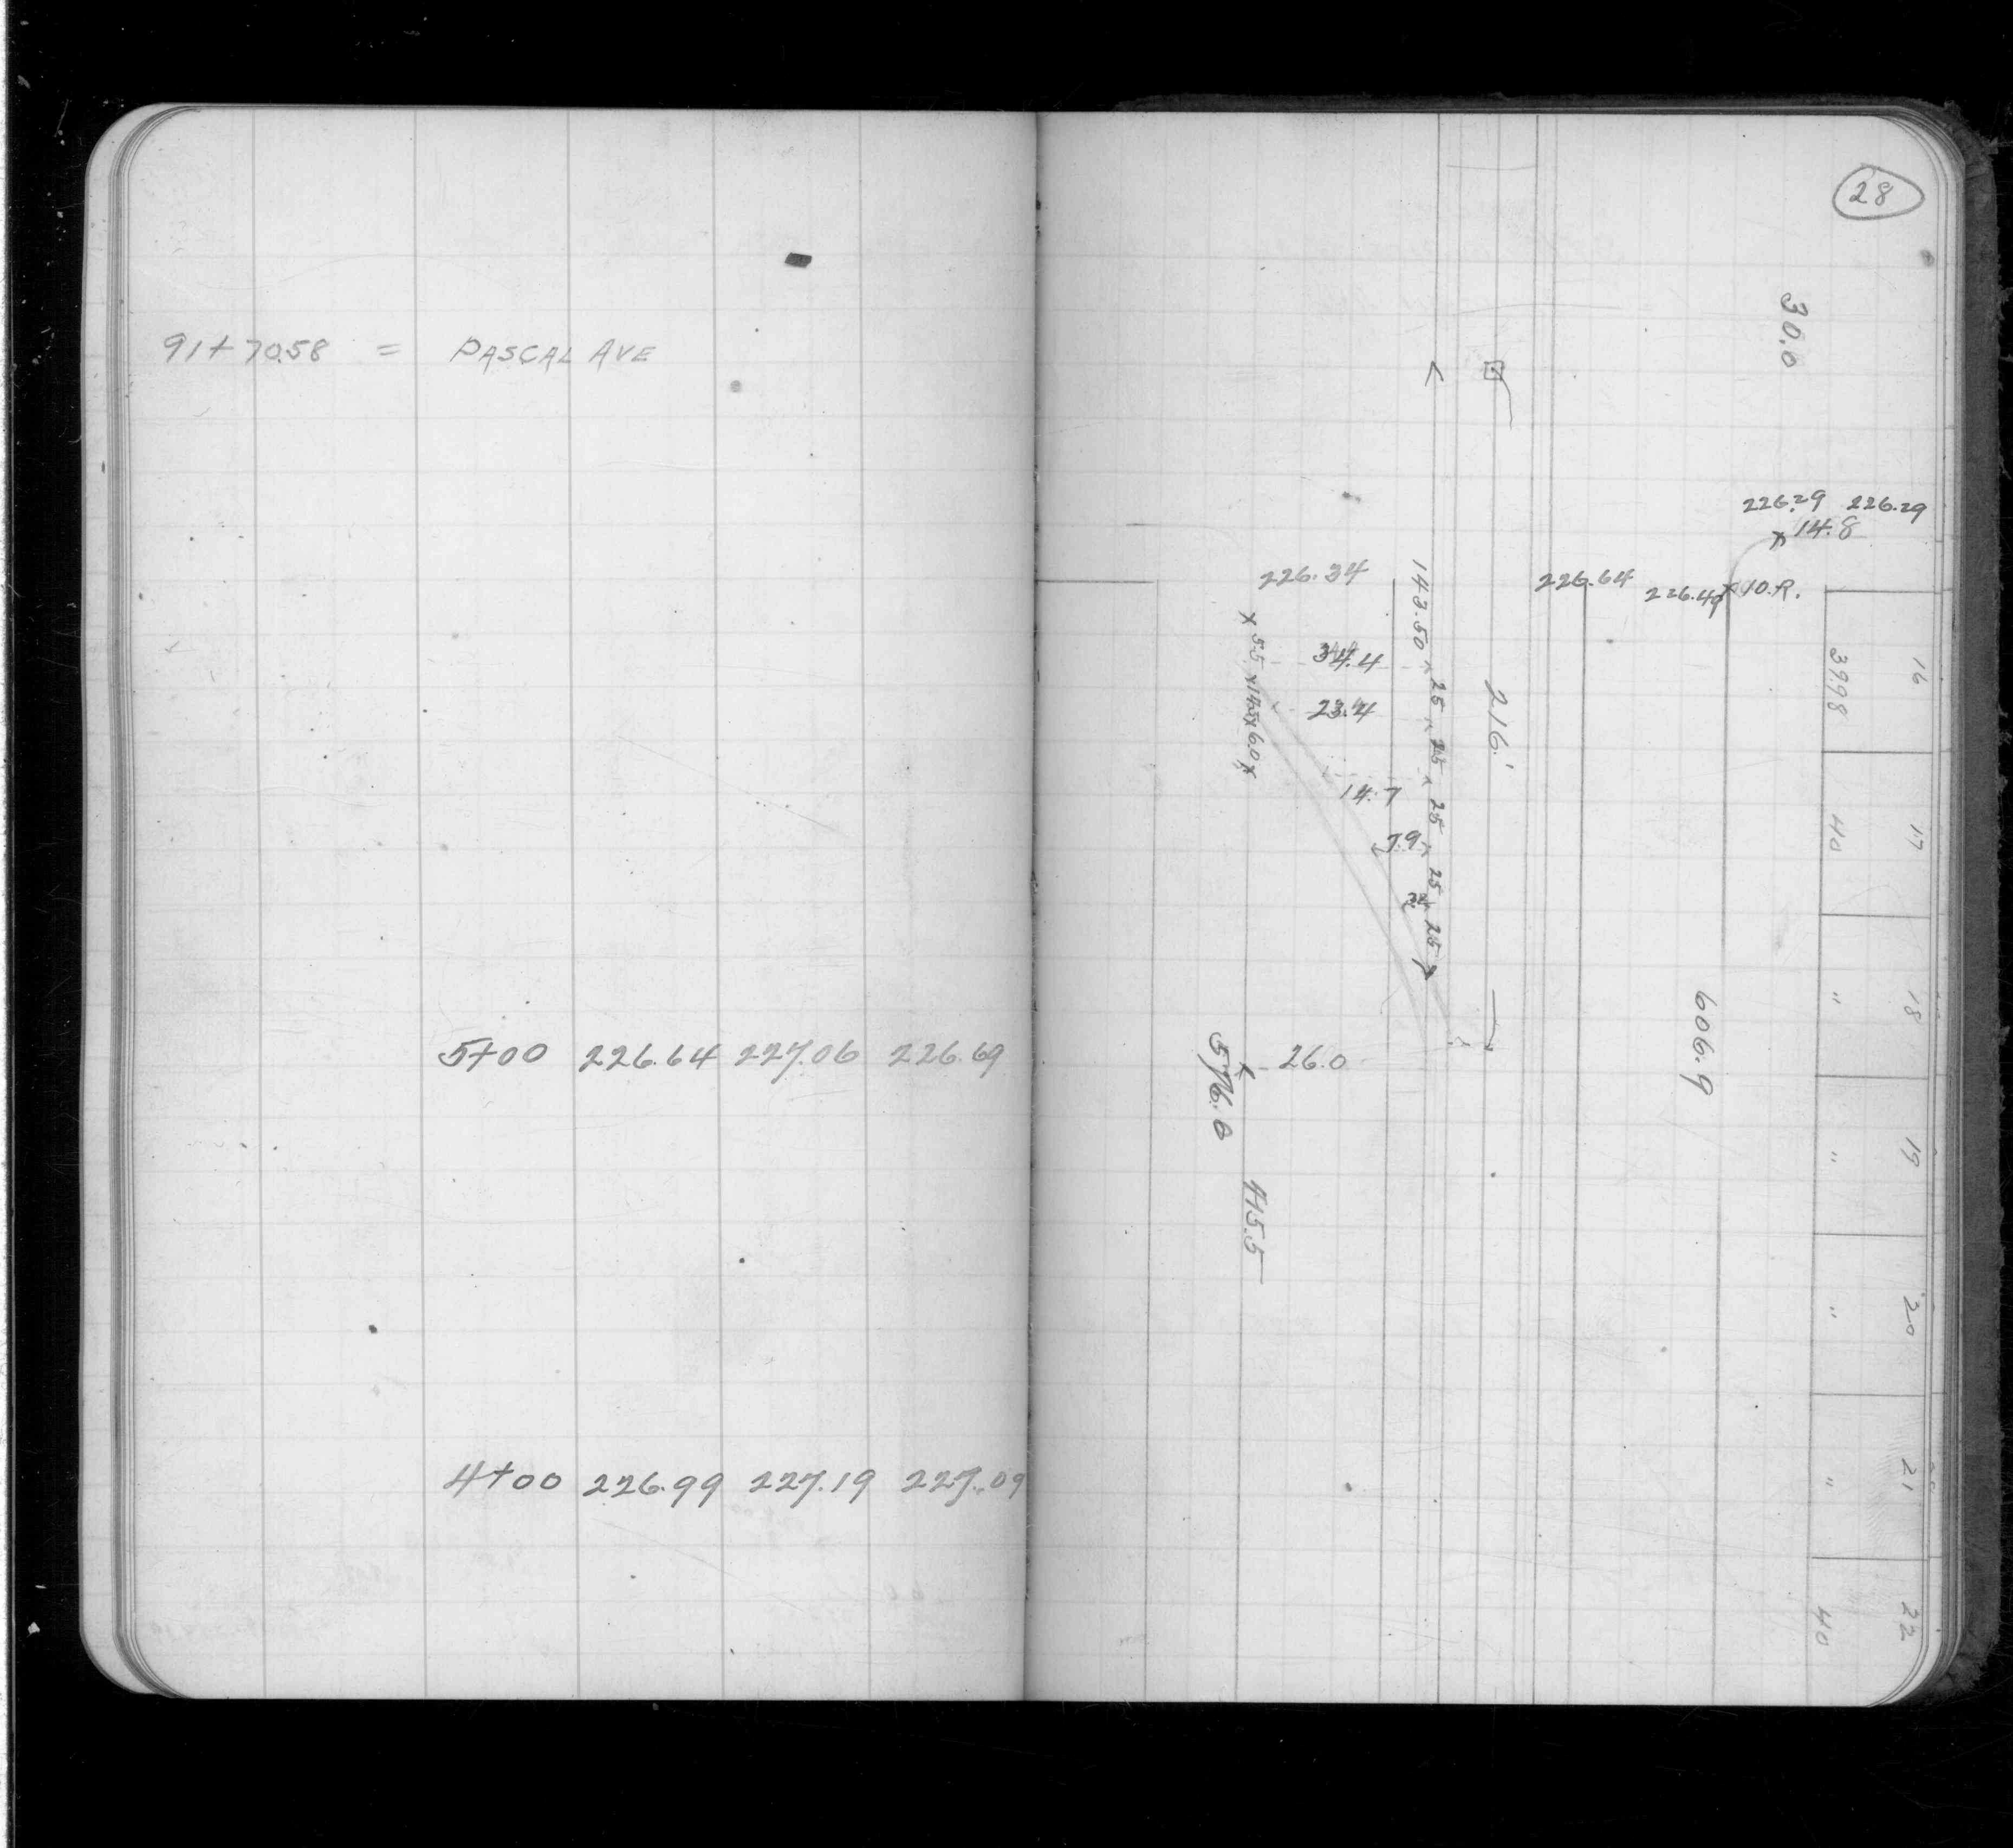 91+70.58 = PASCAL AVE
5+00 226.64 227.06 226.69
4+00 226.99 227.19 227.09
28
30.0
226.29 226.29
14.8
226.34
226.64
226.49 10.R.
143.50
25 25 25 25 25
216.'
5.5 14.5 6.0
34.4
23.4
14.7
7.9
26.0
576.0
415.5
606.9
16 39.98
17 40
18 "
19 "
20 "
21 "
22 40